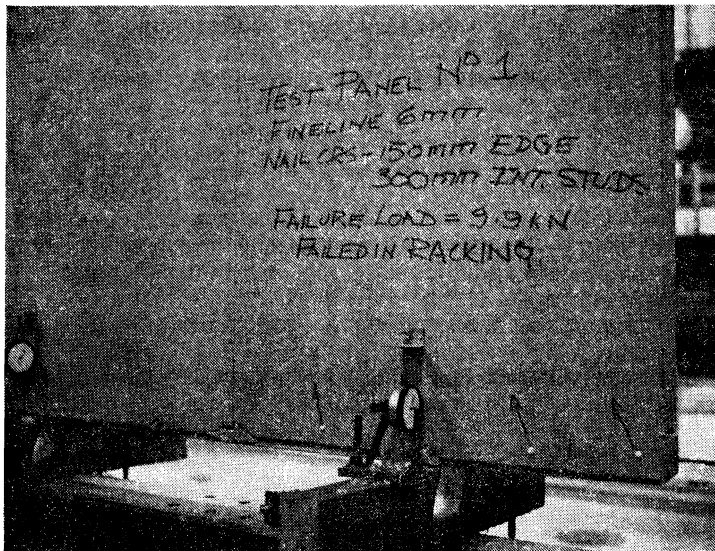 TEST PANEL Nº 1
FINELINE 6mm
NAIL CRS-150mm EDGE
300mm INT. STUDS
FAILURE LOAD = 9.9 KN
FAILED IN RACKING.